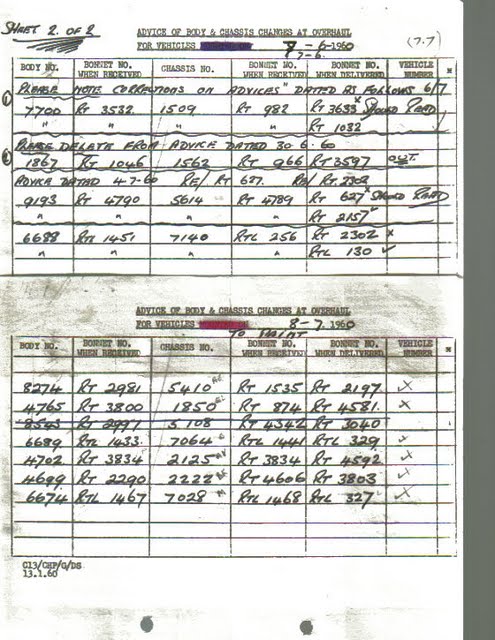 SHEET 2 OF 2
ADVICE OF BODY & CHASSIS CHANGES AT OVERHAUL
FOR VEHICLES 7 - 6 - 1960 (7.7)
7 - 6.
BODY NO. BONNET NO. WHEN RECEIVED CHASSIS NO. BONNET NO. WHEN RECEIVED BONNET NO. WHEN DELIVERED VEHICLE NUMBER
PLEASE NOTE CORRECTIONS ON ADVICES" DATED AS FOLLOWS 6/7
7700 RT 3532 1509 RT 982 RT 3633 x SHOULD READ
" " " " RT 1032
PLEASE DELETE FROM ADVICE DATED 30.6.60
1867 RT 1046 1562 RT 966 RT 3597 OUT.
ADVICE DATED 4-7-60 RE/ RT 627. RE/ RTL 2302
9193 RT 4790 5614 RT 4789 RT 627 x SHOULD READ
" " " " RT 2157
6688 RTL 1451 7140 RTL 256 RTL 2302 x
" " " " RTL 130 ✓
ADVICE OF BODY & CHASSIS CHANGES AT OVERHAUL
FOR VEHICLES 8 - 7. 1960
TO PAINT
BODY NO. BONNET NO. WHEN RECEIVED CHASSIS NO. BONNET NO. WHEN RECEIVED BONNET NO. WHEN DELIVERED VEHICLE NUMBER
8274 RT 2981 5410 RT 1535 RT 2197
4765 RT 3800 1850 RT 874 RT 4581
8543 RT 2997 5108 RT 4342 RT 3040
6689 RTL 1433 7064 RTL 1441 RTL 329
4702 RT 3834 2125 RT 3834 RT 4592
4699 RT 2290 2222 RT 4606 RT 3803
6674 RTL 1467 7028 RTL 1468 RTL 327
G13/CHP/G/DS
13.1.60